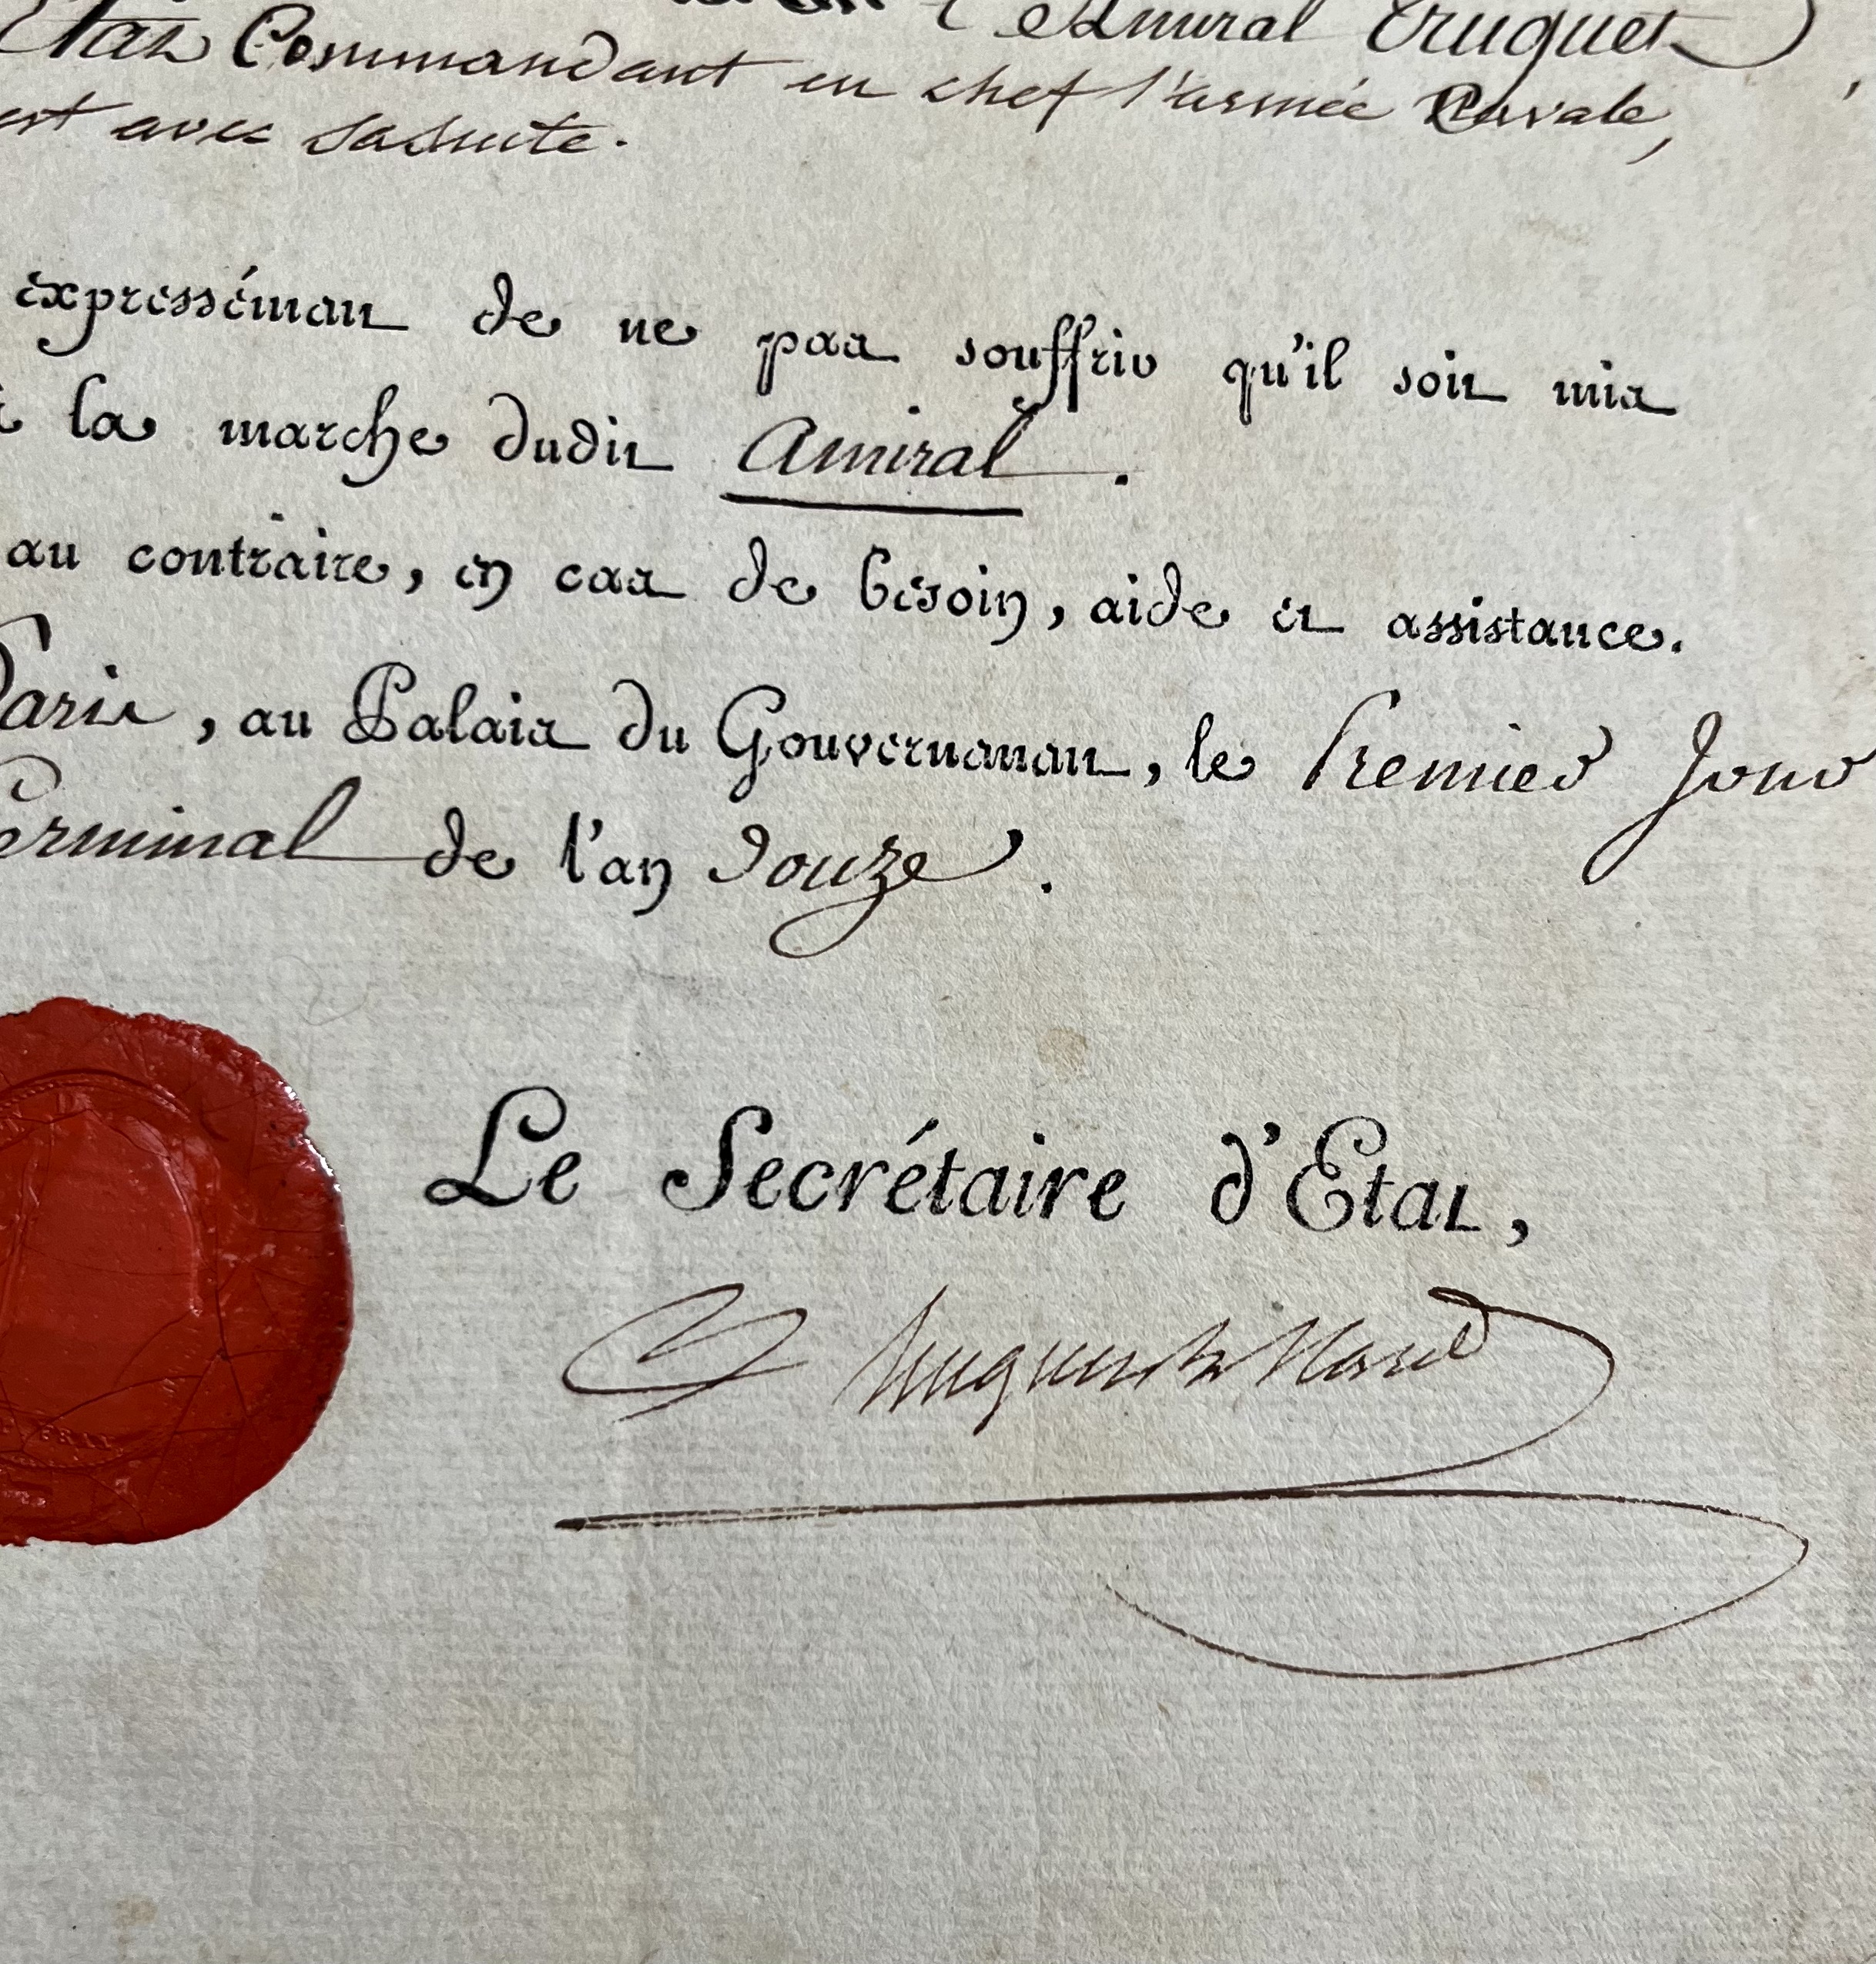 l'Amiral Truguet
Etat Commandant en chef l'armée Navale,
est avec sa suite.
expressément de ne pas souffrir qu'il soit mis
à la marche dudit Amiral.
au contraire, en cas de besoin, aide et assistance.
Paris, au Palais du Gouvernement, le Premier Jour
Germinal de l'an douze.
Le Secrétaire d'Etat,
Hugues B. Maret